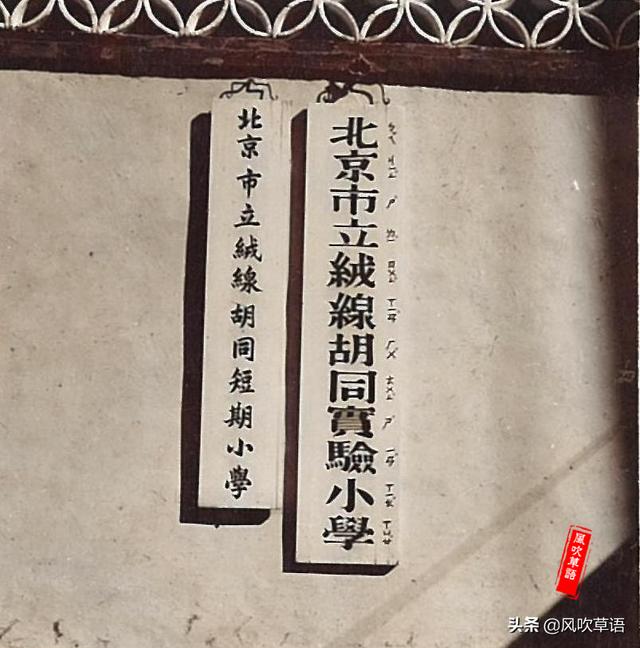 北京市立絨線胡同實驗小學
北京市立絨線胡同短期小學
風吹草語
头条 @风吹草语